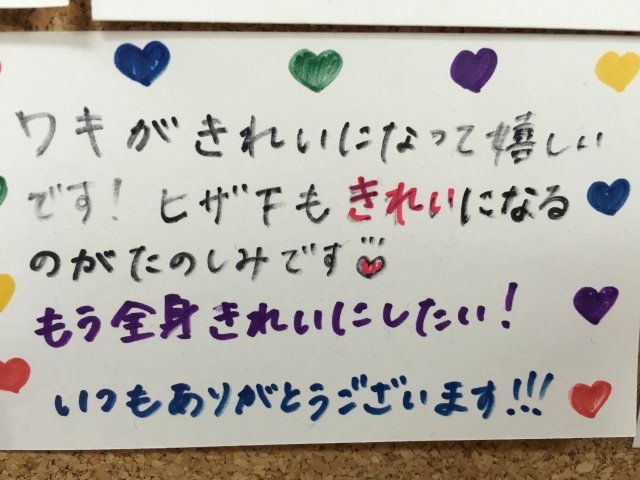 ワキがきれいになって嬉しい
です! ヒザ下もきれいになる
のがたのしみです
もう全身きれいにしたい!
いつもありがとうございます!!!